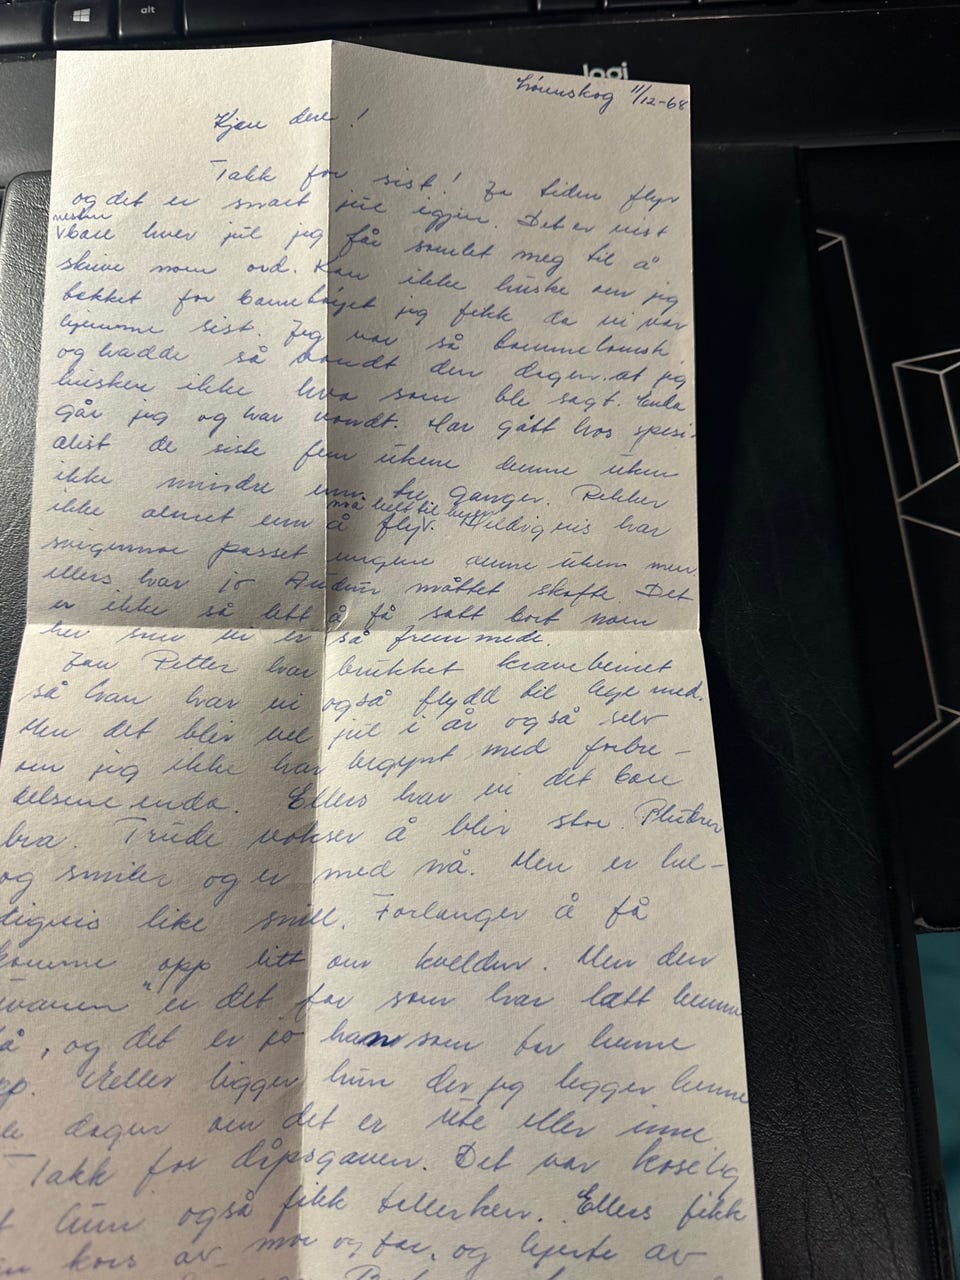 alt
logi
Lørenskog 11/12-68
Kjære dere!
Takk for sist! Ja tiden flyr
og det er snart jul igjen. Det er visst
nesten
bare hver jul jeg får samlet meg til å
skrive noen ord. Kan ikke huske om jeg
takket for barnetøyet jeg fikk da vi var
hjemme sist. Jeg var så
og hadde så vondt den dagen at jeg
husker ikke hva som ble sagt. Enda
går jeg og har vondt. Har gått hos spesi-
alist de siste fem ukene denne uken
ikke mindre enn tre ganger. Rekker
må helt til byen
ikke annet enn å flyr. Heldigvis har
svigermor passet ungene denne uken men
ellers har jo Audun måttet skofte. Det
er ikke så lett å få satt bort noen
her som vi er så fremmede.
Jan Petter har brukket kravebeinet
så han har vi også flydd til lege med.
Men det blir vel jul i år også selv
om jeg ikke har begynt med forbre-
delsene enda. Ellers har vi det bare
bra. Trude vokser å blir stor. Pludrer
og smiler og er med nå. Men er hel-
digvis like snill. Forlanger å få
komme opp litt om kvelden. Men den
"uvanen" er det far som har lært henne
på, og det er jo han som tar henne
opp. Ellers ligger hun der jeg legger henne
hele dagen om det er ute eller inne.
Takk for dåpsgaven. Det var koselig
at hun også fikk tallerken. Ellers fikk
kors av mor og far, og hjerte av